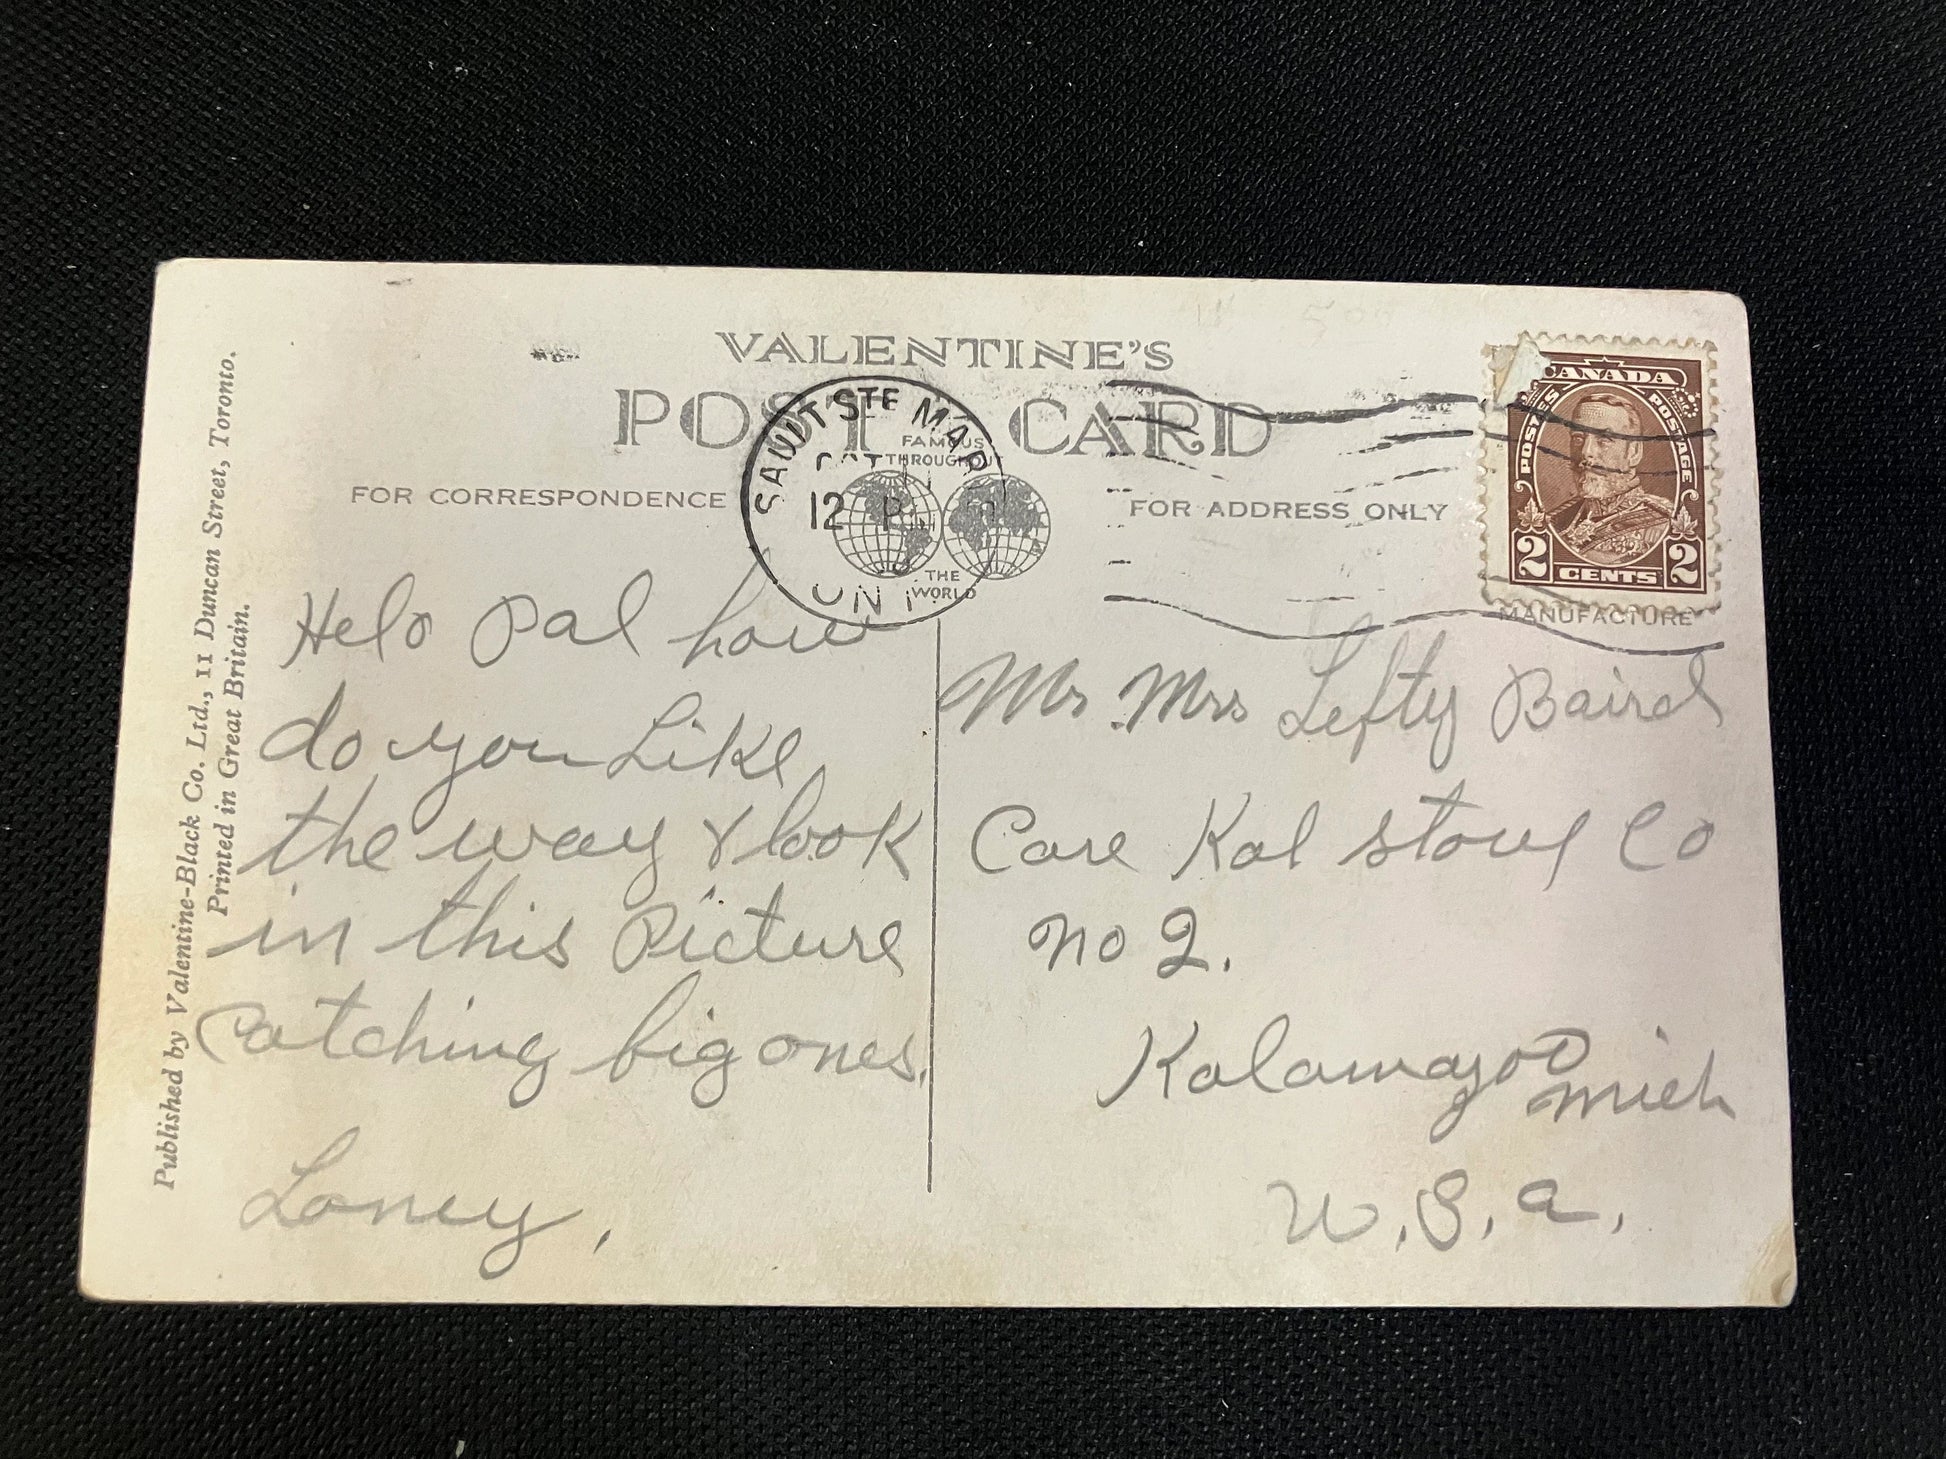 VALENTINE'S
POST CARD
FAMOUS
THROUGHOUT
THE
WORLD
SAULT STE MAR
OCT
12 P
ONT.
FOR CORRESPONDENCE
FOR ADDRESS ONLY
CANADA
POSTES POSTAGE
2 CENTS 2
MANUFACTURE
Helo Pal how
do you Like
the way I look
in this Picture
Catching big ones.
Loney,
Mr. Mrs Lefty Baird
Care Kal Stove Co
No 2.
Kalamazoo
Mich
U.S.A.
Published by Valentine-Black Co. Ltd., 11 Duncan Street, Toronto.
Printed in Great Britain.